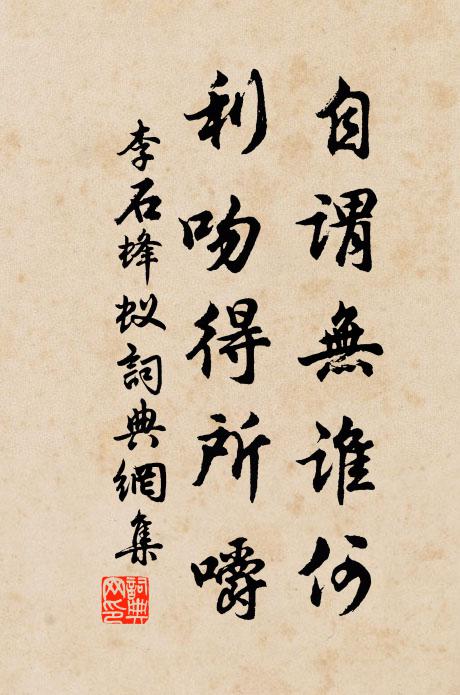 自謂無誰何
利吻得所嚼
李石蜂蚁詞典網集
詞典网印